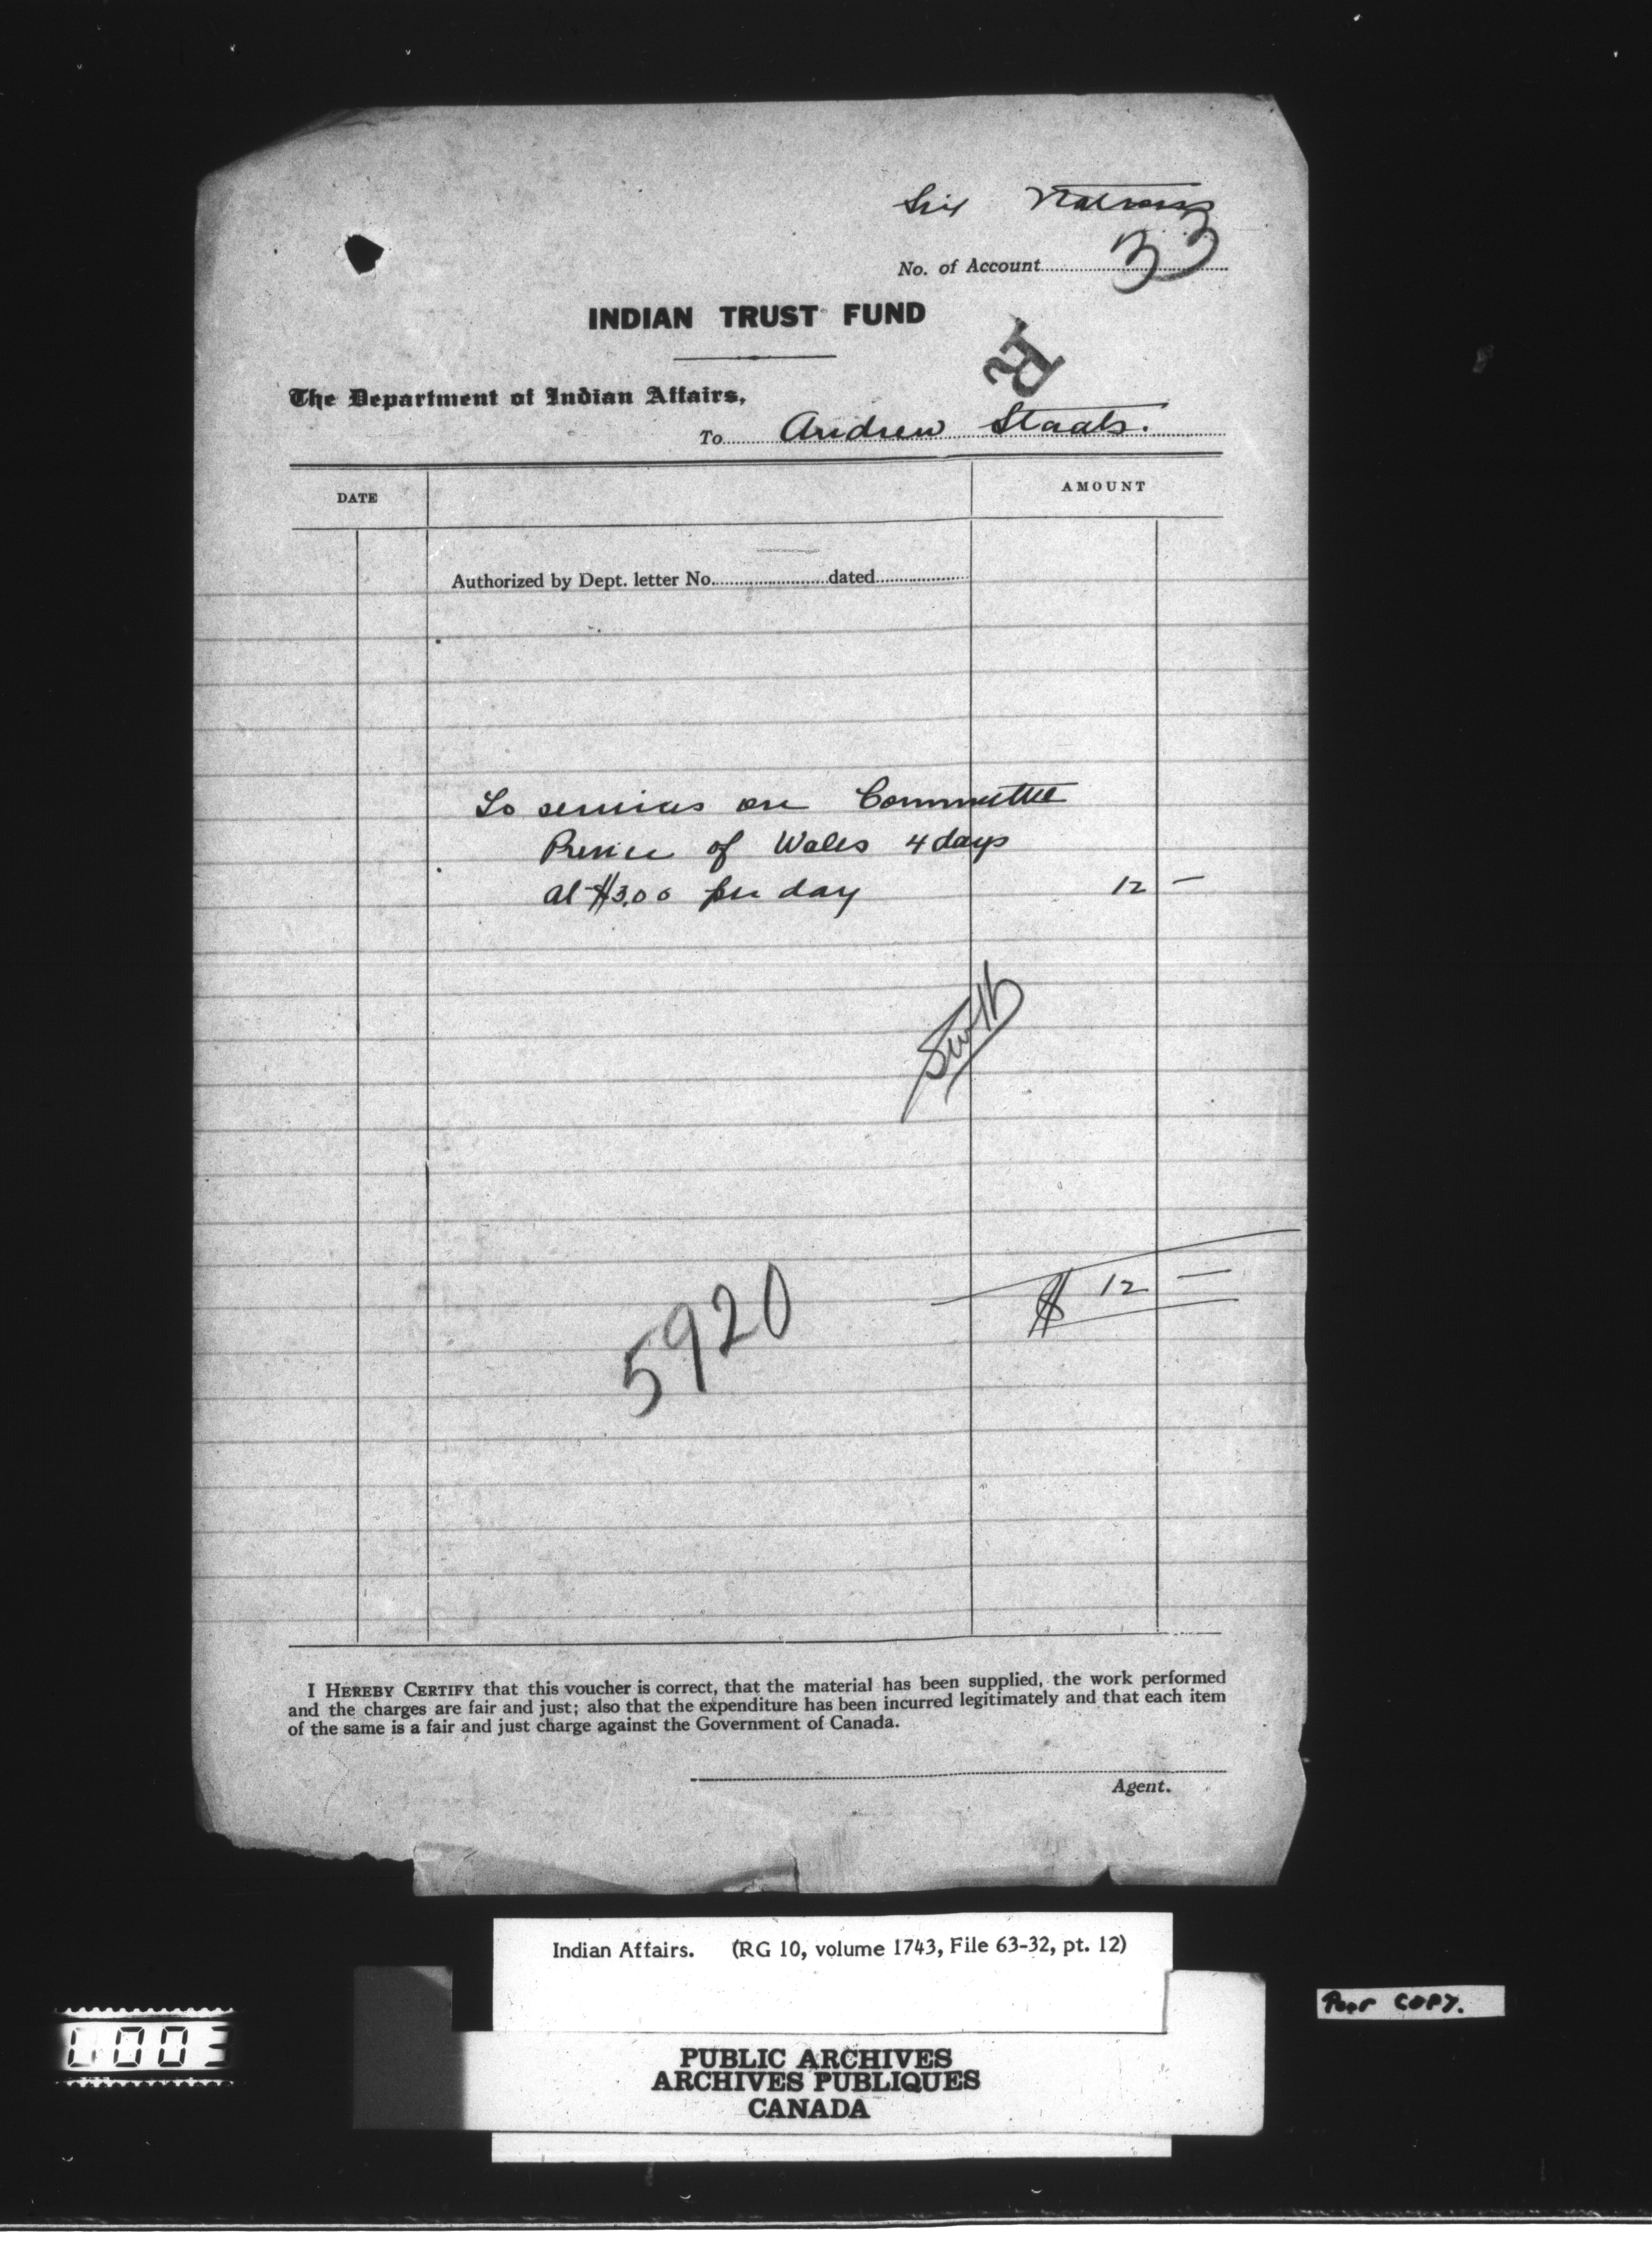 Six Nations
No. of Account 33
INDIAN TRUST FUND
R
The Department of Indian Affairs,
To Andrew Staats.
DATE AMOUNT
Authorized by Dept. letter No. dated
To services on Committee
Prince of Wales 4 days
at $3.00 per day 12 —
$ 12 —
5920
I HEREBY CERTIFY that this voucher is correct, that the material has been supplied, the work performed
and the charges are fair and just; also that the expenditure has been incurred legitimately and that each item
of the same is a fair and just charge against the Government of Canada.
Agent.
Indian Affairs. (RG 10, volume 1743, File 63-32, pt. 12)
Poor COPY.
PUBLIC ARCHIVES
ARCHIVES PUBLIQUES
CANADA